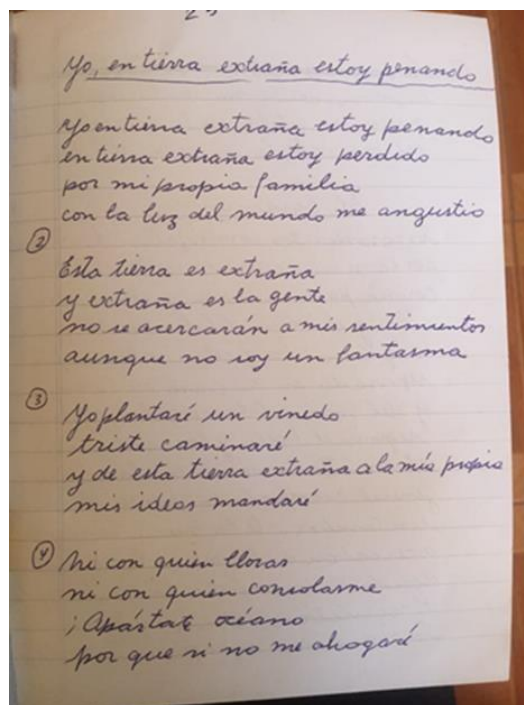 Yo, en tierra extraña estoy penando
Yo en tierra extraña estoy penando
en tierra extraña estoy perdido
por mi propia familia
con la luz del mundo me angustio
2
Esta tierra es extraña
y extraña es la gente
no se acercarán a mis sentimientos
aunque no soy un fantasma
3
Yo plantaré un vinedo
triste caminaré
y de esta tierra extraña a la mía propia
mis ideas mandaré
4 Ni con quien lloras
ni con quien consolarme
¡Apártate océano
por que si no me ahogaré